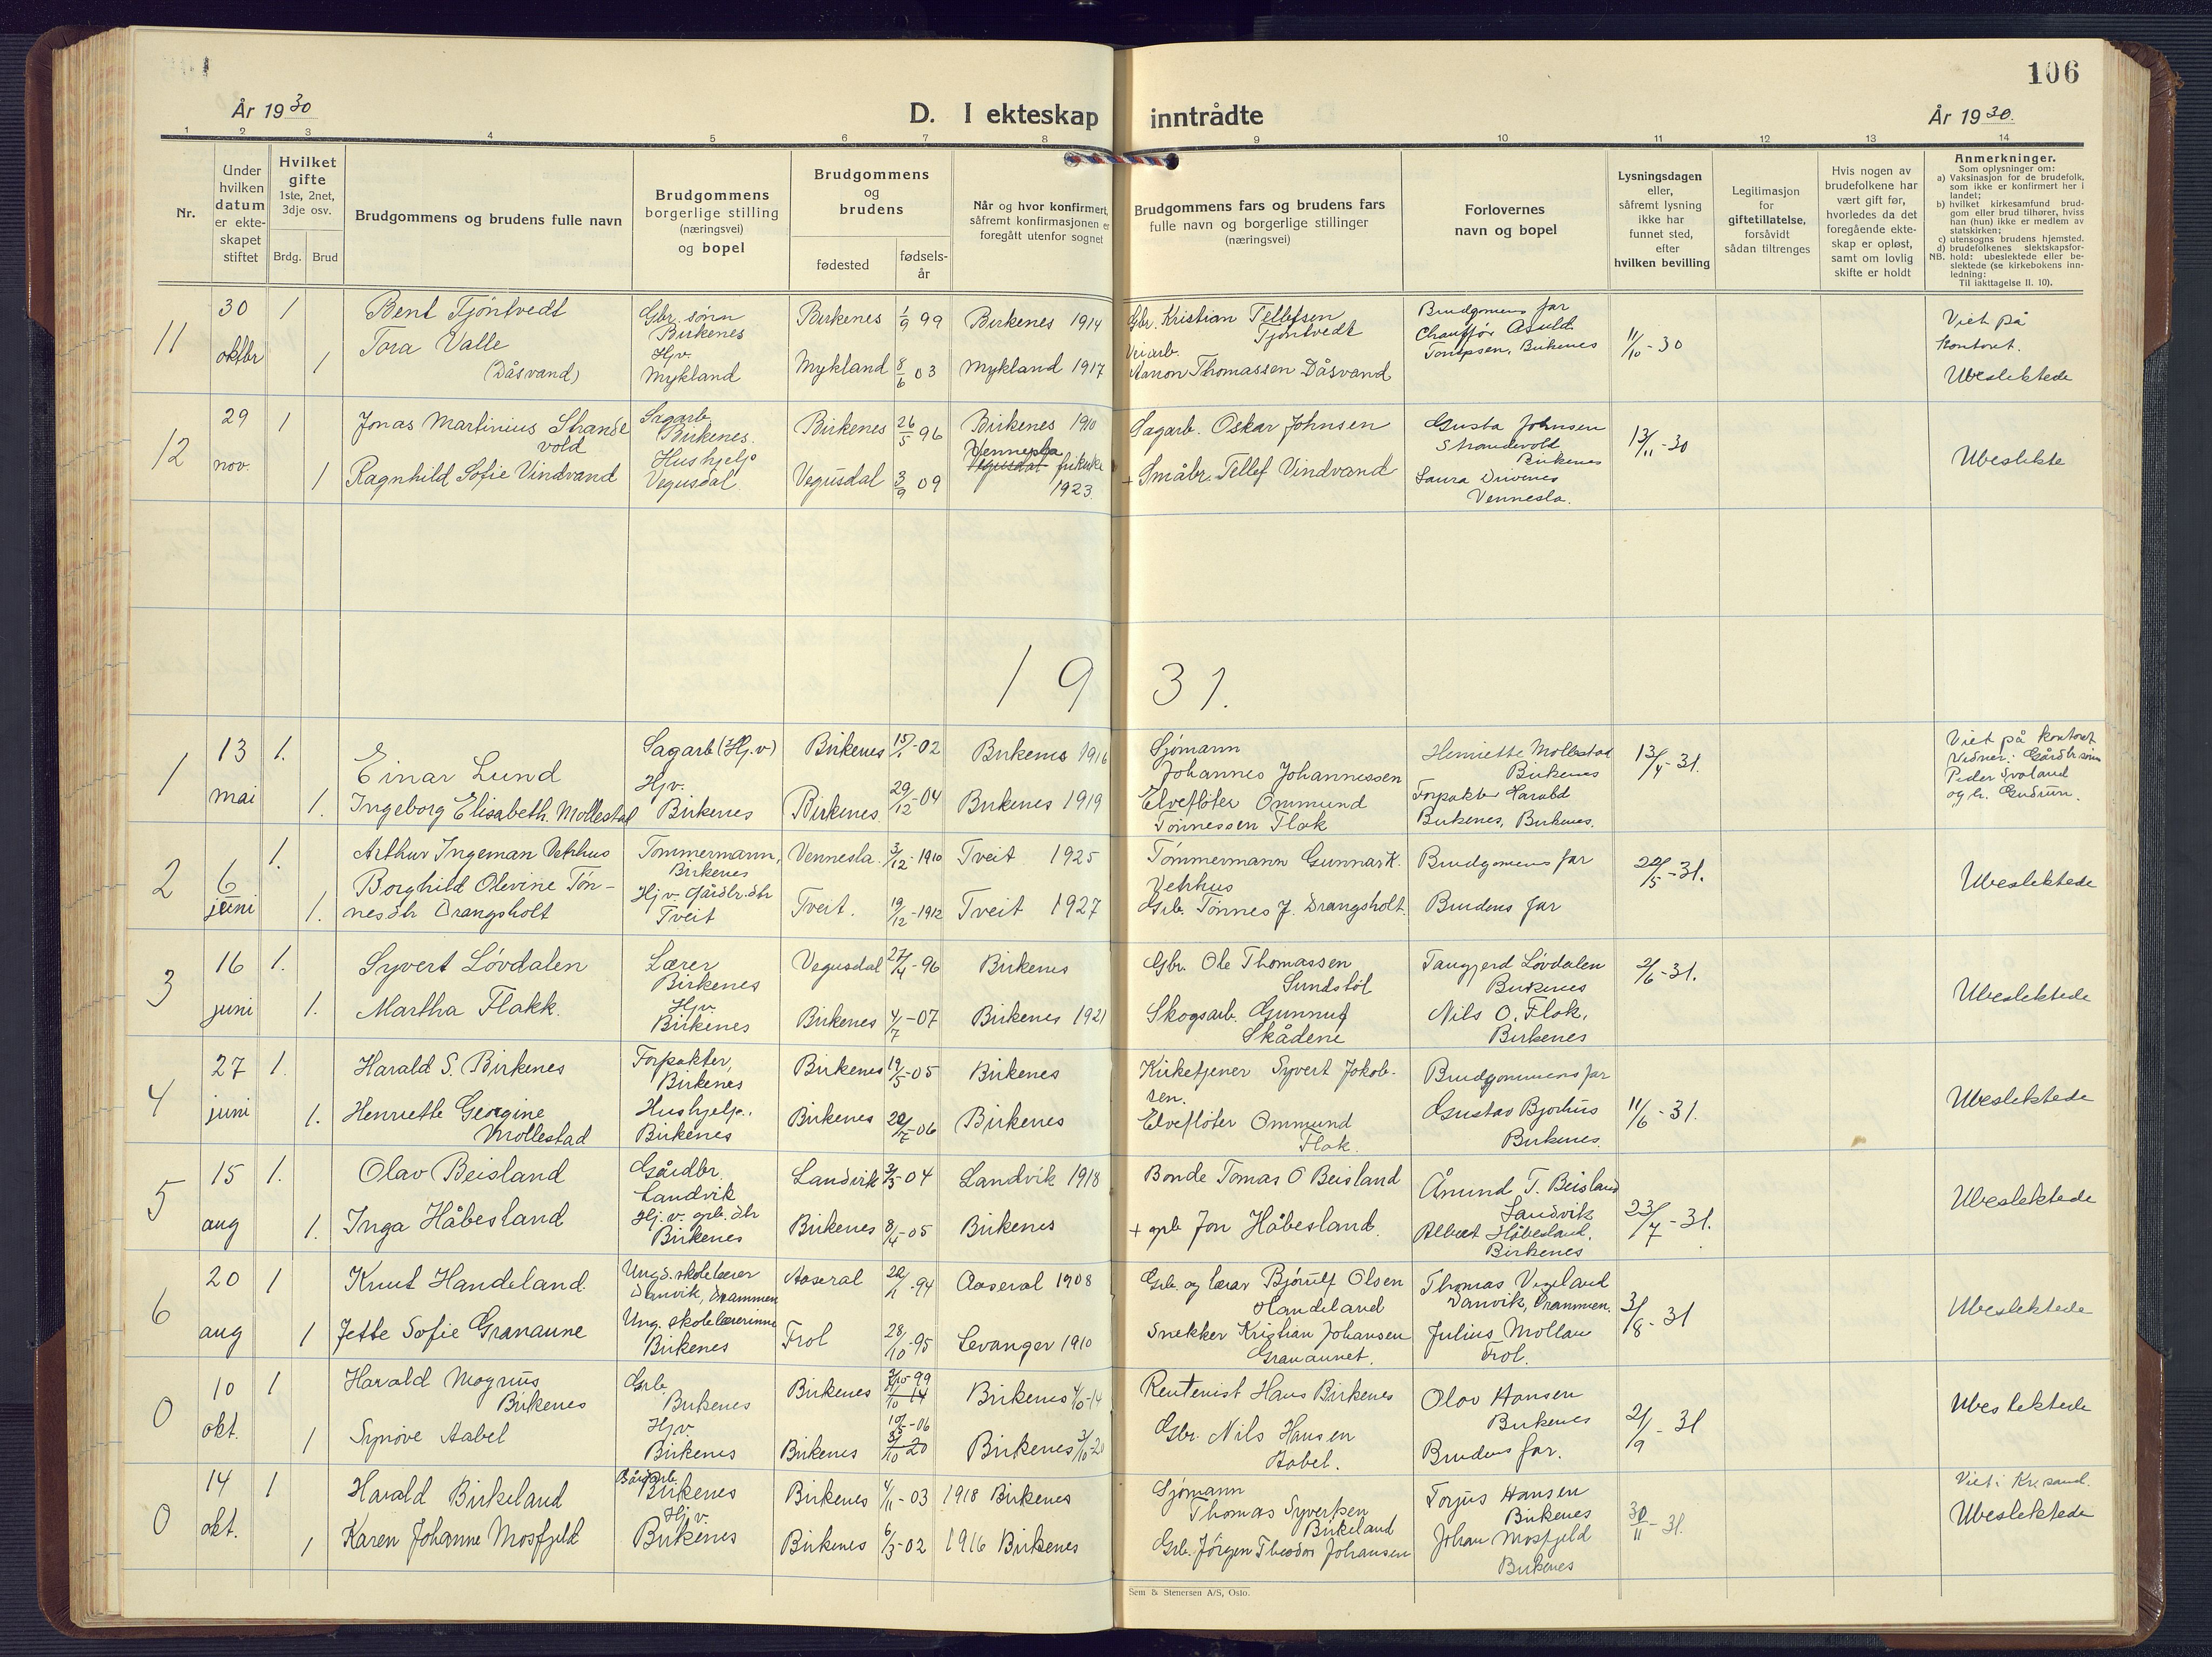 106
År 1930
D. I ekteskap inntrådte
År 1930.
1 2 3 4 5 6 7 8 9 10 11 12 13 14
Nr.
Under hvilken datum er ekte-skapet stiftet
Hvilket gifte
1ste, 2net, 3dje osv.
Brdg. Brud
Brudgommens og brudens fulle navn
Brudgommens borgerlige stilling (næringsvei) og bopel
Brudgommens og brudens
fødested
fødsels-år
Når og hvor konfirmert, såfremt konfirmasjonen er foregått utenfor sognet
Brudgommens fars og brudens fars fulle navn og borgerlige stillinger (næringsvei)
Forlovernes navn og bopel
Lysningsdagen eller, såfremt lysning ikke har funnet sted, efter hvilken bevilling
Legitimasjon for giftetillatelse, forsåvidt sådan tiltrenges
Hvis nogen av brudefolkene har vært gift før, hvorledes da det foregående ekte-skap er opløst, samt om lovlig skifte er holdt
Anmerkninger.
Som oplysninger om:
a) Vaksinasjon for de brudefolk, som ikke er konfirmert her i landet;
b) hvilket kirkesamfund brud-gom eller brud tilhører, hviss han (hun) ikke er medlem av statskirken;
c) utensogns brudens hjemsted.
d) brudefolkenes slektskapsfor-
NB. hold: ubeslektede eller be-slektede (se kirkebokens inn-ledning:
Til iakttagelse II. 10).
11
30 oktbr
1
Bent Tjöntvedt
Gbr. sönn Birkenes
Birkenes 1/9 99
Birkenes 1914
Gbr. Kristian Tellefsen Tjöntvedt
Brudgomens far
11/10-30
Viet på kontoret.
1
Tora Valle (Dåsvand)
Hjv. Mykland
Mykland 8/6 03
Mykland 1917
Aanon Thomassen Dåsvand
Birkenes
Ubeslektede
12
29 nov.
1
Jonas Martinius Strandevold
Sagarb. Birkenes.
Birkenes 26/5 96
Birkenes 1910
Sagarb. Oskar Johnsen
Gusta Johnsen Strandevold Birkenes
13/11-30
Ubeslekte
1
Ragnhild Sofie Vindvand
Hushjelp Vegusdal
Vegusdal 3/9 09
Vennesla Vegusdal frikirke 1923.
+ Småbr. Tellef Vindvand
Laura Drivenes Vennesla.
1931.
1
13 mai
1.
Einar Lund
Sagarb (Hj.v)
Birkenes 15/1-02
Birkenes 1916
Sjømann Johannes Johannessen
Henriette Mollestad Birkenes
13/4-31.
Viet på kontoret Vidner: Gårdbr sönn Peder Svaland og h. Gudrun.
1.
Ingeborg Elisabeth Mollestad
Hjv. Birkenes
Birkenes. 29/12-04
Birkenes 1919
Elvefløter Ommund Tønnessen Flak
Forpakter Harald Birkenes, Birkenes.
2
6 juni
1.
Arthur Ingeman Vehhus
Tømmermann, Birkenes
Vennesla. 3/12-1910
Tveit 1925
Tømmermann Gunnar K. Vehhus
Brudgomens far
22/5-31.
Ubeslektede
1.
Borghild Olevine Tön-nesdtr Drangsholt
Hjv. Gårdbr.dtr Tveit
Tveit. 19/12-1912
Tveit 1927
Grb. Tønnes J. Drangsholt.
Brudens far
3
16 juni
1.
Syvert Lövdalen
Lærer Birkenes
Vegusdal 27/4-96
Birkenes
Gbr. Ole Thomassen Sundstöl
Tangjerd Lövdalen Birkenes
2/6-31.
Ubeslektede
1.
Martha Flakk.
Hjv. Birkenes
Birkenes 4/7-07
Birkenes 1921
Skogsarb. Gunnuf Skådene
Nils O. Flak, Birkenes
4
27 juni
1.
Harald S. Birkenes
Forpakter, Birkenes
Birkenes 19/5-05
Birkenes
Kirketjener Syvert Jokob-sen.
Brudgommens far
11/6-31.
Ubeslektede
1.
Henriette Georgine Mollestad
Hushjelp. Birkenes
Birkenes 22/7-06
Birkenes
Elvefløter Ommund Flak.
Gustav Bjorhus Birkenes.
5
15 aug
1.
Olav Beisland
Gårdbr. Landvik
Landvik 3/3-04
Landvik 1918
Bonde Tomas O Beisland
Ånund T. Beisland Landvik
23/7-31.
Ubeslektede
1.
Inga Håbesland
Hj.v. grb. dtr Birkenes
Birkenes 8/4-05
Birkenes
+ grb Jon Håbesland.
Albert Håbesland, Birkenes
6
20 aug
1
Knut Handeland.
Ungd. skolelærer Danvik, Drammen
Aaseral 22/1-94
Aaseral 1908
Grb. og lærar Bjørulf Olsen Handeland
Thomas Vigeland Danvik, Drammen,
3/8-31
Ubeslektede
1
Jette Sofie Granaune
Ung. skolelærerinne Birkenes
Frol 28/10-95
Levanger 1910
Snekker Kristian Johansen Granaunet.
Julius Mollan Frol.
0
10 okt.
1
Harald Magnus Birkenes
Grb. Birkenes
Birkenes
Birkenes 4/10-14
Rentenist Hans Birkenes
Olav Hansen Birkenes
21/9-31
Ubeslektede
1
Synöve Aabel
Hjv. Birkenes
Birkenes
Birkenes 3/10-20
Gbr. Nils Hansen Aabel.
Brudens far.
0
14 okt.
1
Harald Birkeland
Birkenes
Birkenes 4/11-03
1918 Birkenes
Sjømann Thomas Syvertsen Birkeland
Torjus Hansen Birkenes
30/11-31.
Viet i Kr.sand. Ubeslektede
1
Karen Johanne Mosfjeld
Hj.v. Birkenes
Birkenes 6/3-02
1916 Birkenes
Grb. Jörgen Theodor Johansen
Johan Mosfjeld Birkenes
Sem & Stenersen A/S, Oslo.